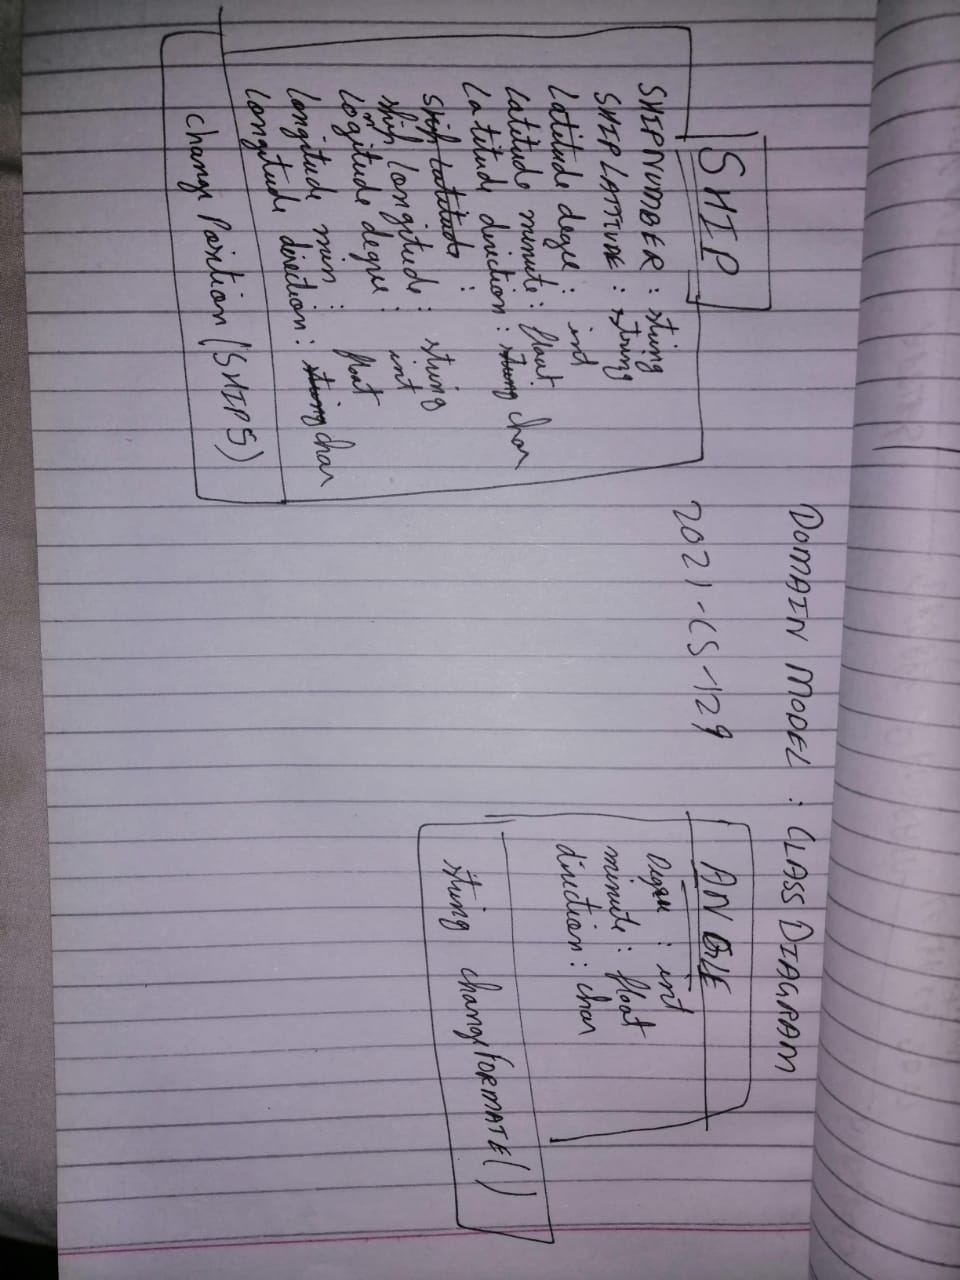 DOMAIN MODEL : CLASS DIAGRAM
2021-CS-129
SHIP
SHIPNUMBER : string
SHIPLATITUDE : string
Latitude degree : int
Latitude minute : float
Latitude direction : string char
Ship Latitude :
ship longitude : string
Logitude degree : int
longitude min : float
longitude direction : string char
change Position (SHIPS)
ANGLE
Degree : int
minute : float
direction : char
string change FORMATE ( )